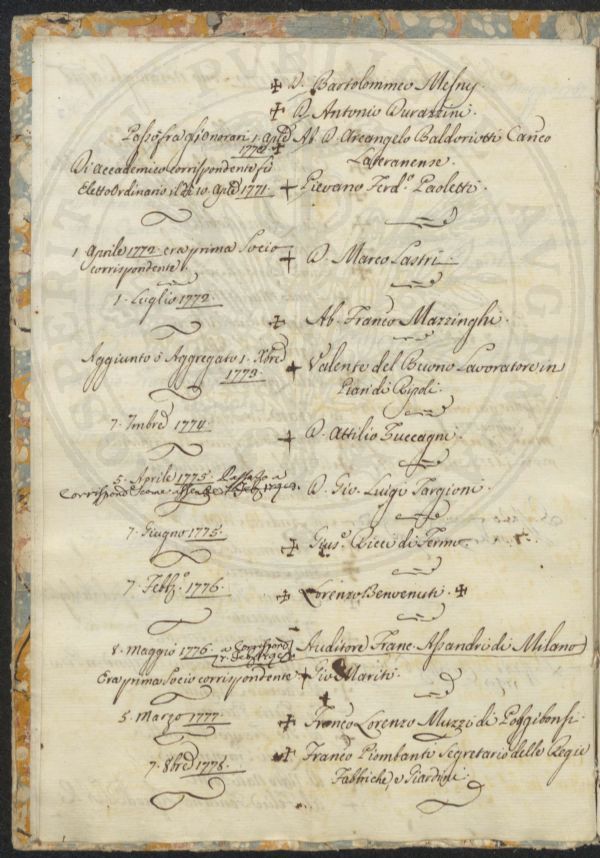 ✠ D. Bartolommeo Mesny.
✠ D. Antonio Durazzini.
Passò fra gli Onorari 1. Ap.e Ab. D. Arcangelo Baldoriotti Can.co
1772 ✠ Lateranense.
Di Accademico corrispondente fù
Eletto Ordinario il dì 10. Ap.e 1771. + Pievano Ferd.o Paoletti.
1 Aprile 1772. era prima Socio + D. Marco Lastri.
corrispondente.
1. Luglio 1772.
✠ Ab. Franco Mazzinghi.
Aggiunto o Aggregato 1. Xbre + Valente del Buono Lavoratore in
1773. Pian di Ripoli.
7. 7mbre 1774. + D. Attilio Zuccagni.
5. Aprile 1775. Passato a
D. Gio. Luigi Targioni.
7. Giugno 1775. ✠ Gius.e Ricci di Fermo.
7. Febb.o 1776. ✠ Lorenzo Benvenuti. ✠
8. Maggio 1776. a Corrispond Auditore Franc. di Milano
Era prima Socio corrispondente + Gio Mariti.
5. Marzo 1777. ✠ Franco Lorenzo Muzzi di Poggibonsi.
✠ Franco Piombanti Segretario delle Regie
7. 8bre 1778. Fabbriche, e Giardini.